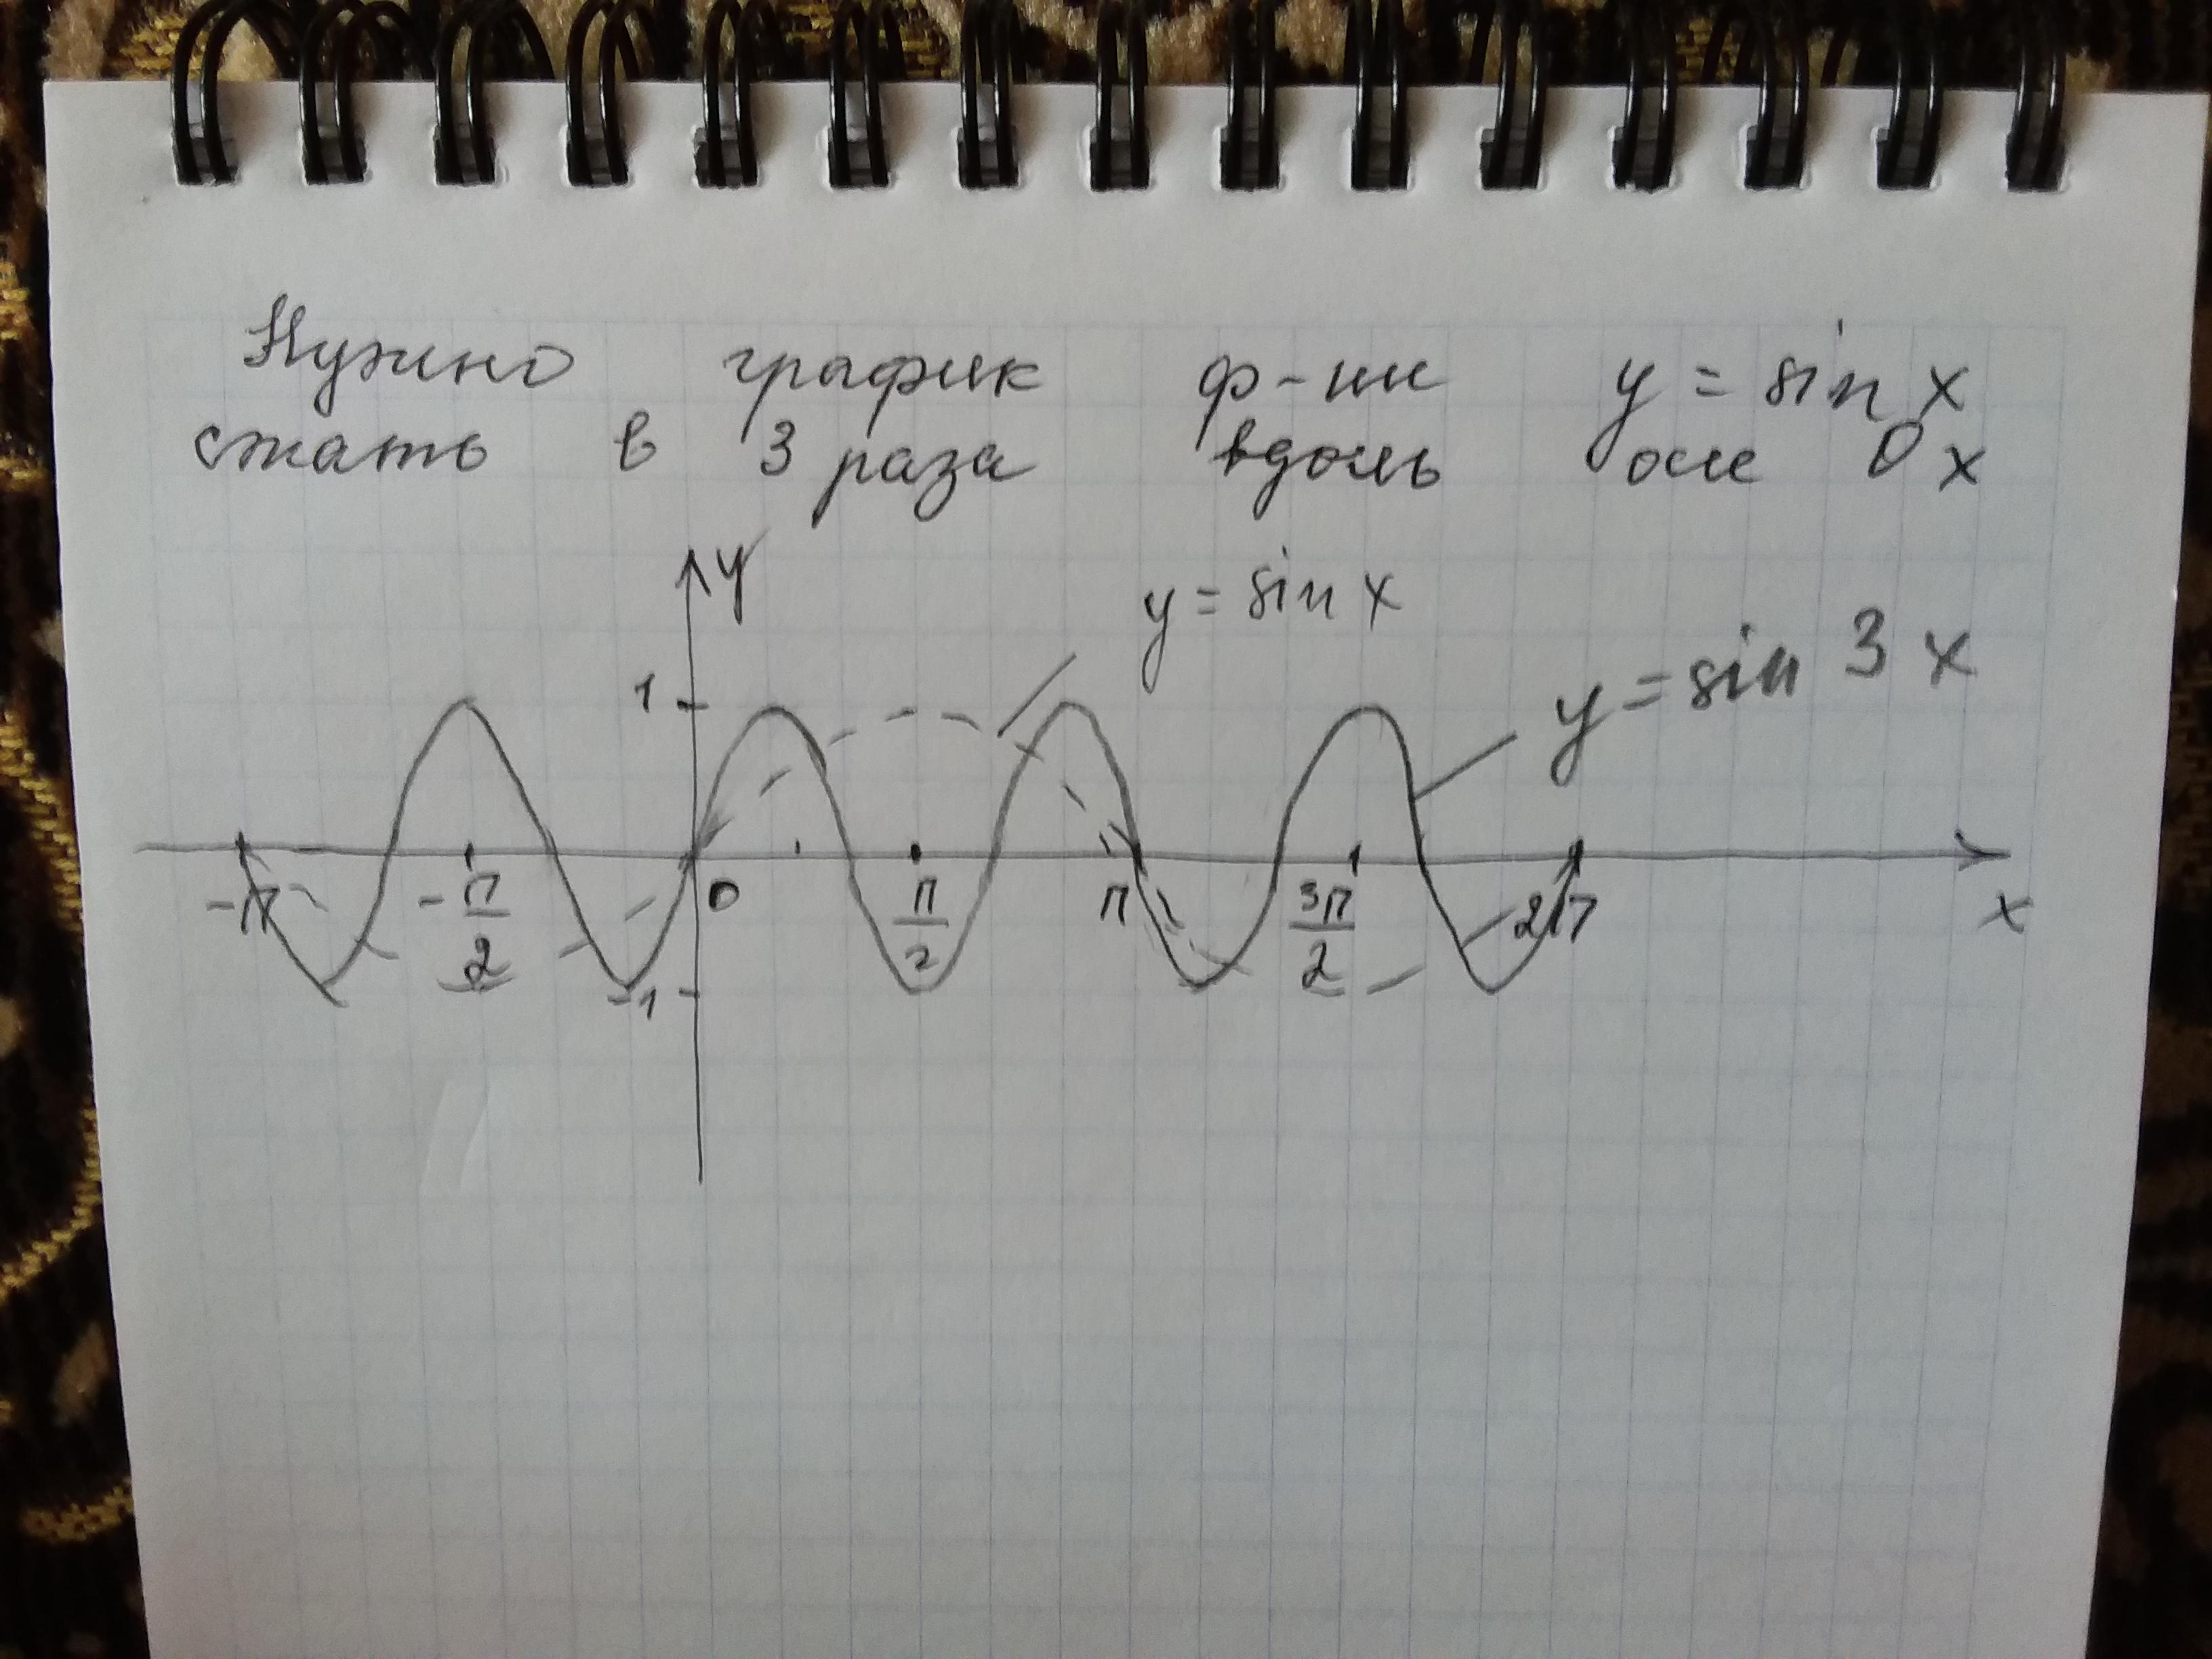 Нужно график ф-ии y = sin x
сжать в 3 раза вдоль оси Ox
y
y = sin x
y = sin 3x
1
-π
-π/2
0
π/2
π
3π/2
2π
x
-1